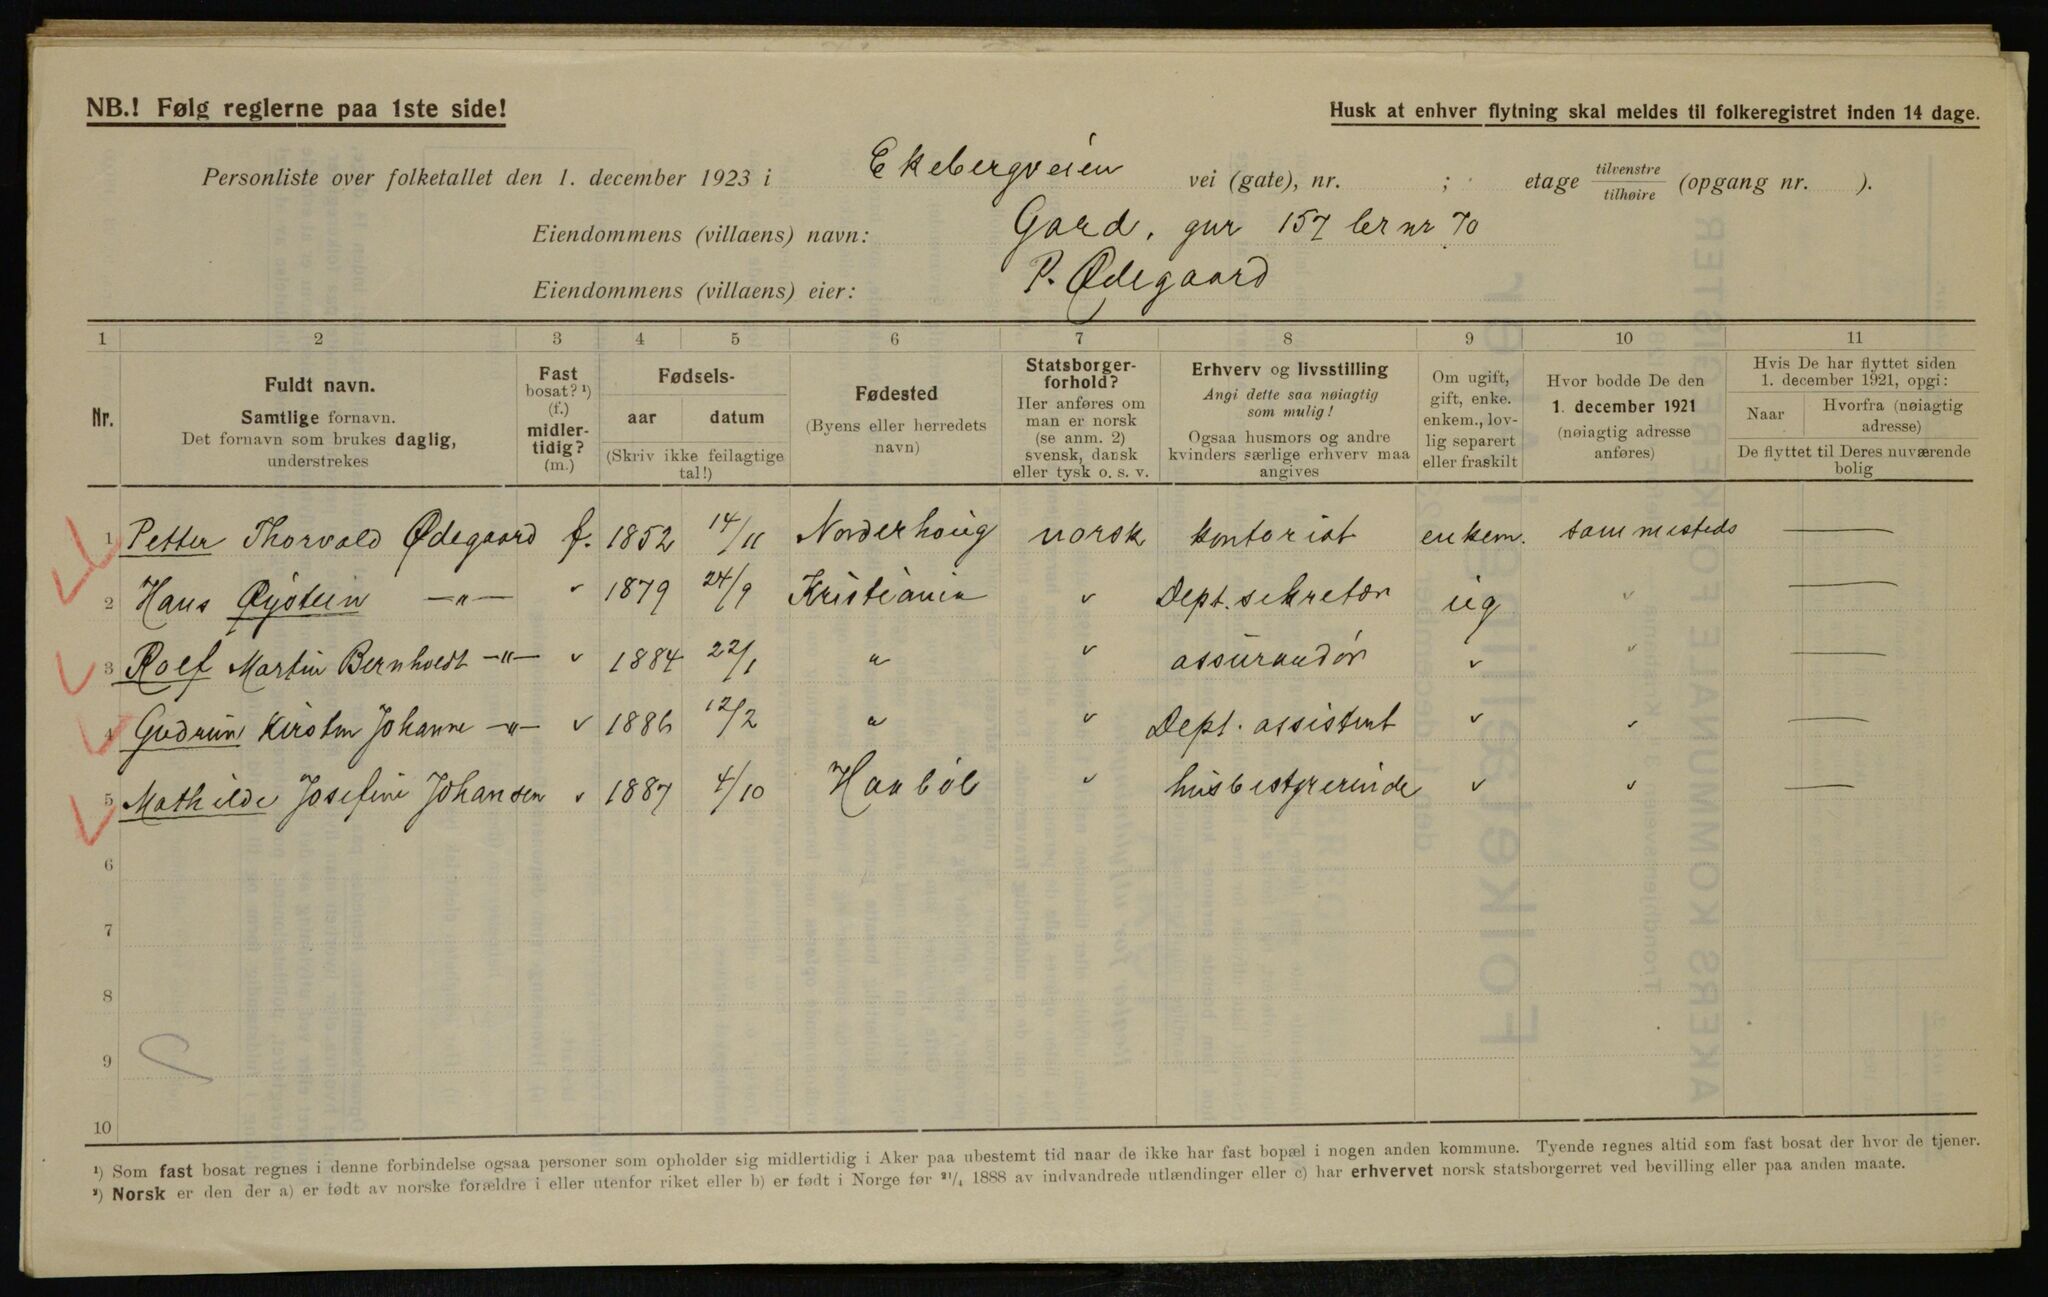 NB.! Følg reglerne paa 1ste side!
Husk at enhver flytning skal meldes til folkeregistret inden 14 dage.
Personliste over folketallet den 1. december 1923 i Ekebergveien vei (gate), nr. ; etage tilvenstre/tilhøire (opgang nr. ).
Eiendommens (villaens) navn: Gard, gnr 157 br nr 70
Eiendommens (villaens) eier: P. Ødegaard
1 2 3 4 5 6 7 8 9 10 11
Nr.
Fuldt navn.
Samtlige fornavn.
Det fornavn som brukes daglig,
understrekes
Fast
bosat? ¹)
(f.)
midler-
tidig?
(m.)
Fødsels-
aar datum
(Skriv ikke feilagtige
tal!)
Fødested
(Byens eller herredets
navn)
Statsborger-
forhold?
Her anføres om
man er norsk
(se anm. 2)
svensk, dansk
eller tysk o. s. v.
Erhverv og livsstilling
Angi dette saa nøiagtig
som mulig!
Ogsaa husmors og andre
kvinders særlige erhverv maa
angives
Om ugift,
gift, enke.
enkem., lov-
lig separert
eller fraskilt
Hvor bodde De den
1. december 1921
(nøiagtig adresse
anføres)
Hvis De har flyttet siden
1. december 1921, opgi:
Naar
Hvorfra (nøiagtig
adresse)
De flyttet til Deres nuværende
bolig
1 Petter Thorvald Ødegaard f. 1852 14/11 Norderhoug norsk kontorist enkem. sammesteds —
2 Hans Øystein —"— " 1879 24/9 Kristiania " Dept. sekretær ug " —
3 Rolf Martin Bernholdt —"— " 1884 22/1 " " assurandør " " —
4 Gudrun Kirsten Johanne —"— " 1886 12/2 " " Dept. assistent " " —
5 Mathilde Josefine Johansen " 1887 4/10 Haabøl " husbestyrerinde " " —
6
7
8
9
10
¹) Som fast bosat regnes i denne forbindelse ogsaa personer som opholder sig midlertidig i Aker paa ubestemt tid naar de ikke har fast bopæl i nogen anden kommune. Tyende regnes altid som fast bosat der hvor de tjener.
²) Norsk er den der a) er født av norske forældre i eller utenfor riket eller b) er født i Norge før ²¹/₄ 1888 av indvandrede utlændinger eller c) har erhvervet norsk statsborgerret ved bevilling eller paa anden maate.